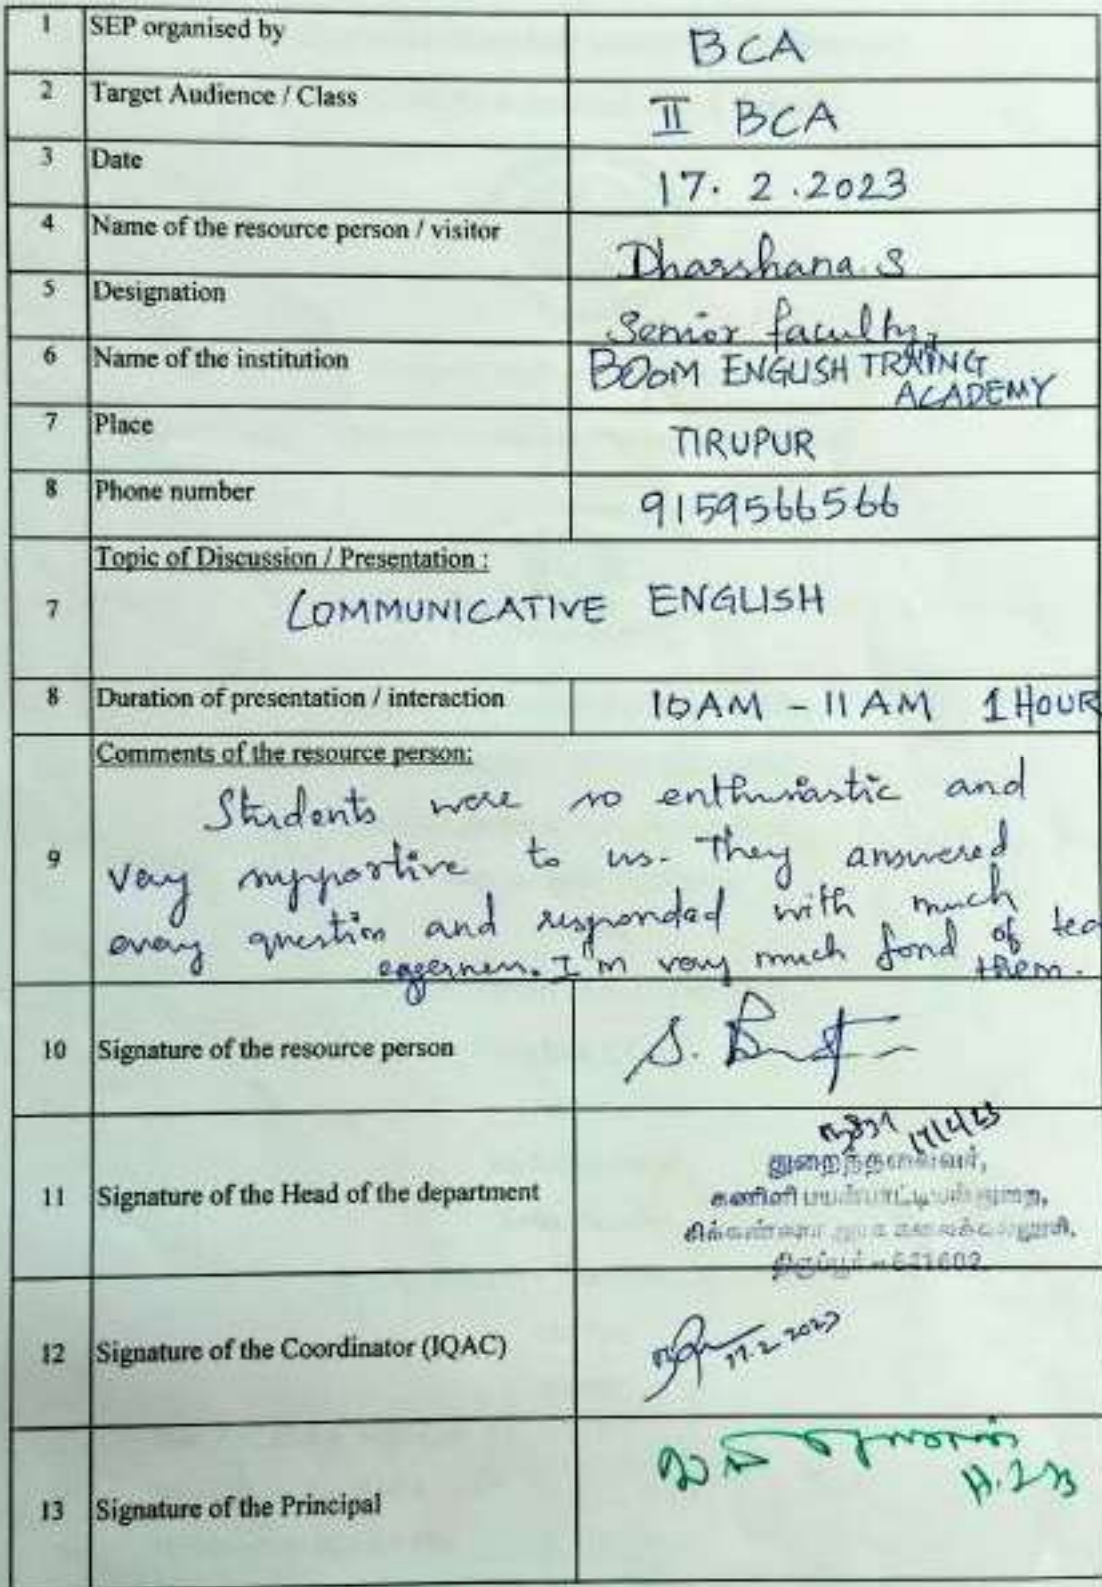 1 SEP organised by BCA
2 Target Audience / Class II BCA
3 Date 17. 2 .2023
4 Name of the resource person / visitor Dharshana. S
5 Designation Senior faculty,
6 Name of the institution BOOM ENGLISH TRAINING
ACADEMY
7 Place TIRUPUR
8 Phone number 9159566566
Topic of Discussion / Presentation :
7 COMMUNICATIVE ENGLISH
8 Duration of presentation / interaction 10AM - 11 AM 1 HOUR
Comments of the resource person:
Students were so enthusiastic and
9 very supportive to us. They answered
every question and responded with much
eagerness. I'm very much fond of tea
them.
10 Signature of the resource person S.
11 Signature of the Head of the department 17/2/23
துறைத்தலைவர்,
கணினி பயன்பாட்டியல் துறை,
சிக்கண்ணா அரசு கலைக்கல்லூரி,
திருப்பூர் - 641602.
12 Signature of the Coordinator (IQAC) 17.2.2023
13 Signature of the Principal